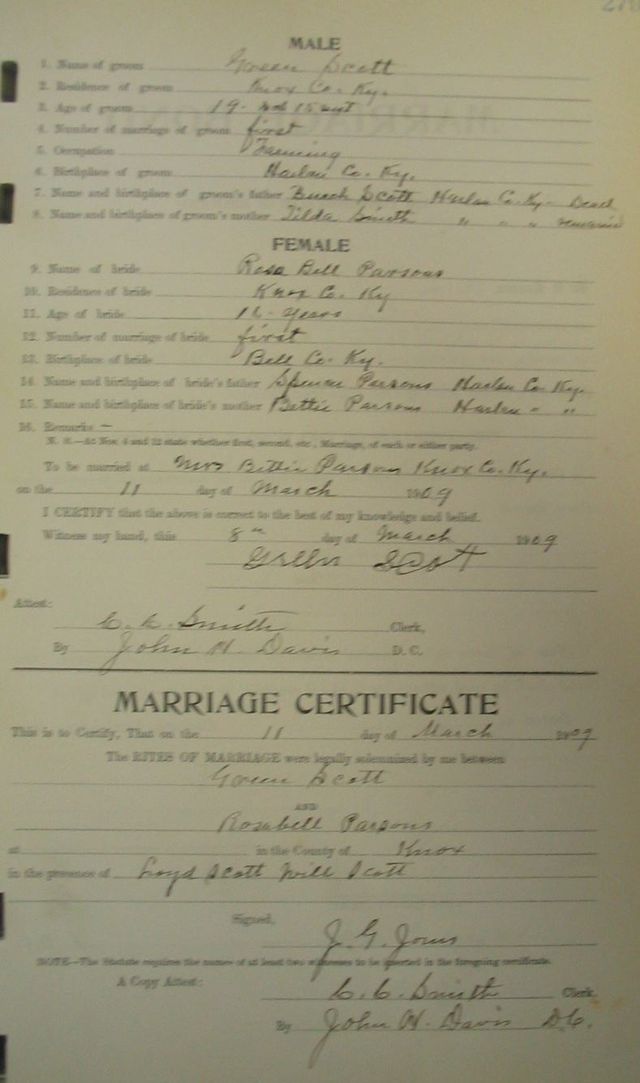 MALE
1. Name of groom Green Scott
2. Residence of groom Knox Co. Ky.
3. Age of groom 19
4. Number of marriage of groom first
5. Occupation Farming
6. Birthplace of groom Harlan Co. Ky.
7. Name and birthplace of groom's father Scott Harlan Co. Ky - Dead
8. Name and birthplace of groom's mother Tilda Smith " " "
FEMALE
9. Name of bride Rosa Bell Parsons
10. Residence of bride Knox Co. Ky
11. Age of bride 16 - years
12. Number of marriage of bride first
13. Birthplace of bride Bell Co. Ky.
14. Name and birthplace of bride's father Spencer Parsons Harlan Co. Ky.
15. Name and birthplace of bride's mother Bettie Parsons Harlan " "
16. Remarks -
N. B.—At Nos. 4 and 12 state whether first, second, etc., Marriage, of each or either party.
To be married at Mrs Bettie Parsons Knox Co. Ky.
on the 11 day of March 1909
I CERTIFY that the above is correct to the best of my knowledge and belief.
Witness my hand, this 8th day of March 1909
Green Scott
Attest:
C. C. Smith Clerk,
By John H. Davis D. C.
MARRIAGE CERTIFICATE
This is to Certify, That on the 11 day of March 1909
The RITES OF MARRIAGE were legally solemnized by me between
Green Scott
AND
Rosabell Parsons
at in the County of Knox
in the presence of Loyd Scott Will Scott
Signed,
J. G. Jones
NOTE—The Statute requires the names of at least two witnesses to be inserted in the foregoing certificate.
A Copy Attest:
C. C. Smith Clerk
By John H. Davis D.C.